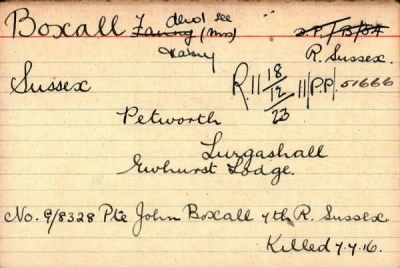 Boxall Fanny (Mrs) decd see
Harry
D.P./B/84
R. Sussex.
Sussex
R.11 18/12/23 11/P.P. 51666
Petworth
Lurgashall
Ewhurst Lodge.
No. G/8328 Pte John Boxall 7th R. Sussex
Killed 7.7.16.